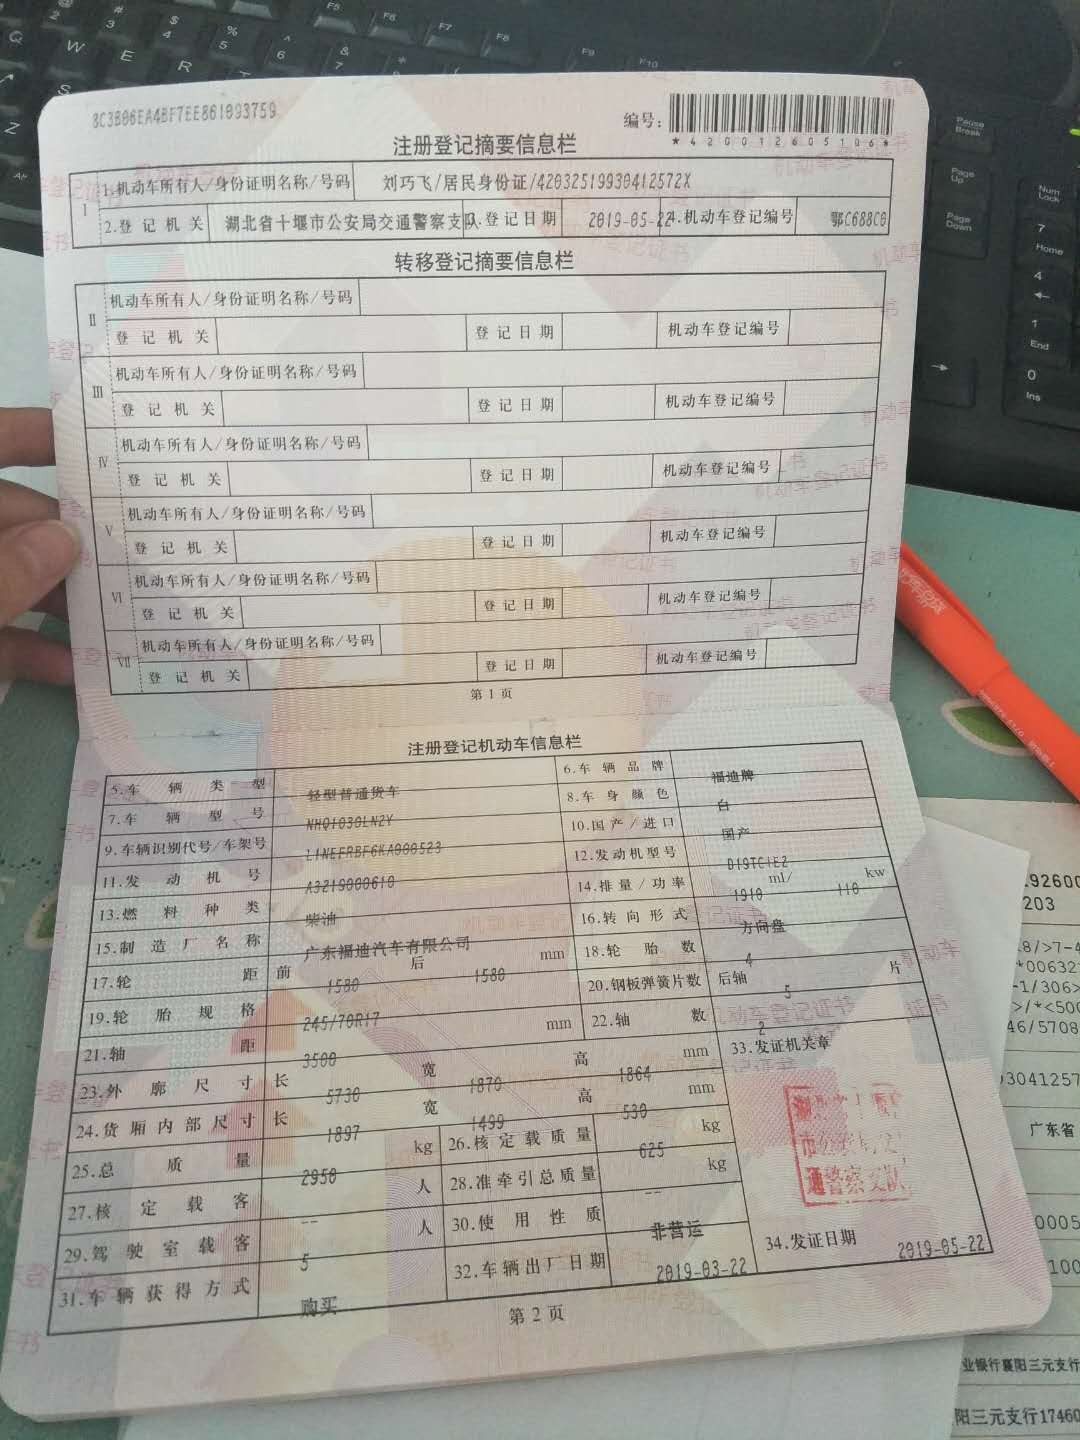 8C3B06EA4BF7EE861093759
编号：
*420012605106*
注册登记摘要信息栏
I 1.机动车所有人/身份证明名称/号码 刘巧飞/居民身份证/42032519930412572X
2.登记机关 湖北省十堰市公安局交通警察支队 3.登记日期 2019-05-22 4.机动车登记编号 鄂C688C0
转移登记摘要信息栏
II 机动车所有人/身份证明名称/号码
登记机关 登记日期 机动车登记编号
III 机动车所有人/身份证明名称/号码
登记机关 登记日期 机动车登记编号
IV 机动车所有人/身份证明名称/号码
登记机关 登记日期 机动车登记编号
V 机动车所有人/身份证明名称/号码
登记机关 登记日期 机动车登记编号
VI 机动车所有人/身份证明名称/号码
登记机关 登记日期 机动车登记编号
VII 机动车所有人/身份证明名称/号码
登记机关 登记日期 机动车登记编号
第1页
注册登记机动车信息栏
5.车辆类型 轻型普通货车 6.车辆品牌 福迪牌
7.车辆型号 NHQ1030LN2Y 8.车身颜色 白
9.车辆识别代号/车架号 L1NEFRBF6KA000523 10.国产/进口 国产
11.发动机号 A3219000610 12.发动机型号 D19TCIE2
13.燃料种类 柴油 14.排量/功率 1910 ml/ 110 kw
15.制造厂名称 广东福迪汽车有限公司 16.转向形式 方向盘
17.轮距 前 1580 后 1580 mm 18.轮胎数 4
19.轮胎规格 245/70R17 20.钢板弹簧片数 后轴 5 片
21.轴距 3500 mm 22.轴数 2
23.外廓尺寸 长 5730 宽 1870 高 1864 mm 33.发证机关章
24.货厢内部尺寸 长 1897 宽 1499 高 530 mm
25.总质量 2950 kg 26.核定载质量 625 kg
27.核定载客 -- 人 28.准牵引总质量 -- kg
29.驾驶室载客 5 人 30.使用性质 非营运
31.车辆获得方式 购买 32.车辆出厂日期 2019-03-22 34.发证日期 2019-05-22
第2页
通警察支队
广东省
业银行襄阳三元支行
阳三元支行17460